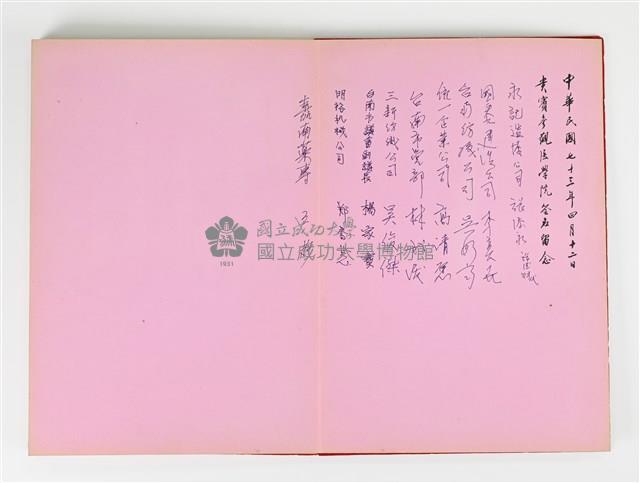 中華民國七十三年四月十二日
貴賓參觀醫學院簽名留念
永記造漆公司
國泰建設公司
台南紡織公司 吳
統一企業公司 高清愿
台南市黨部 林
三新紡織公司 吳俊傑
台南市議會副議長 楊家
明裕机械公司 鄭
嘉南藥專
國立成功大學
國立成功大學博物館
1931